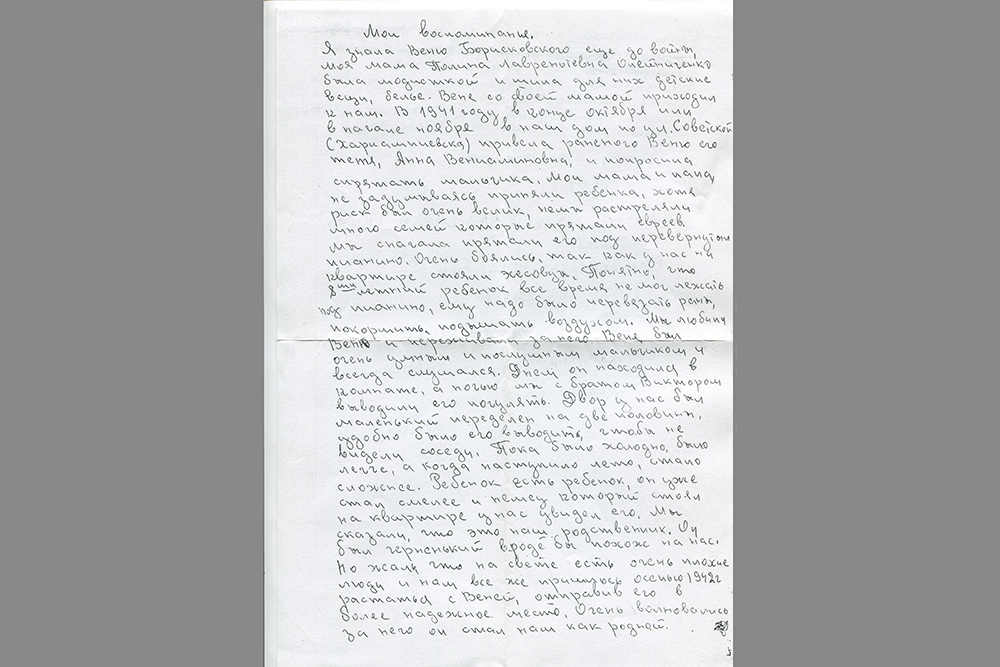 Мои воспоминанье.
Я знала Веню Борисковского еще до войны,
моя мама Полина Лаврентьевна Олейниченко
была модисткой и шила для них детские
вещи, белье. Веня со своей мамой приходил
к нам. В 1941 году в конце октября или
в начале ноября в наш дом по ул. Советской
(Харлампиевска) привела раненого Веню его
тетя, Анна Вениаминовна, и попросила
спрятать мальчика. Мои мама и папа,
не задумываясь приняли ребенка, хотя
риск был очень велик, немы растреляли
много семей которые прятали евреев.
Мы сначала прятали его под перевернутым
пианино. Очень боялись, так как у нас на
квартире стояли жесовцы. Понятно, что
8ми летний ребенок все время не мог лежать
под пианино, ему надо было перевязать раны,
покормить, подышать воздухом. Мы любили
Веню и переживали за него Веня был
очень умным и послушным мальчиком и
всегда слушался. Днем он находился в
комнате, а ночью мы с братом Виктором
выводили его погулять. Двор у нас был
маленький переделен на две половины,
удобно было его выводить, чтобы не
видели соседи. Пока было халодно, было
легче, а когда наступило лето, стало
сложнее. Ребенок есть ребенок, он уже
стал смелее и немец который стоял
на квартире у нас увидел его. Мы
сказали, что это наш родственник. Он
был черненький вроде бы похож на нас.
Но жаль что на свете есть очень плохие
люди и нам все же пришлось осенью 1942г
растаться с Веней, отправив его в
более надежное место. Очень волновались
за него он стал нам как родной.